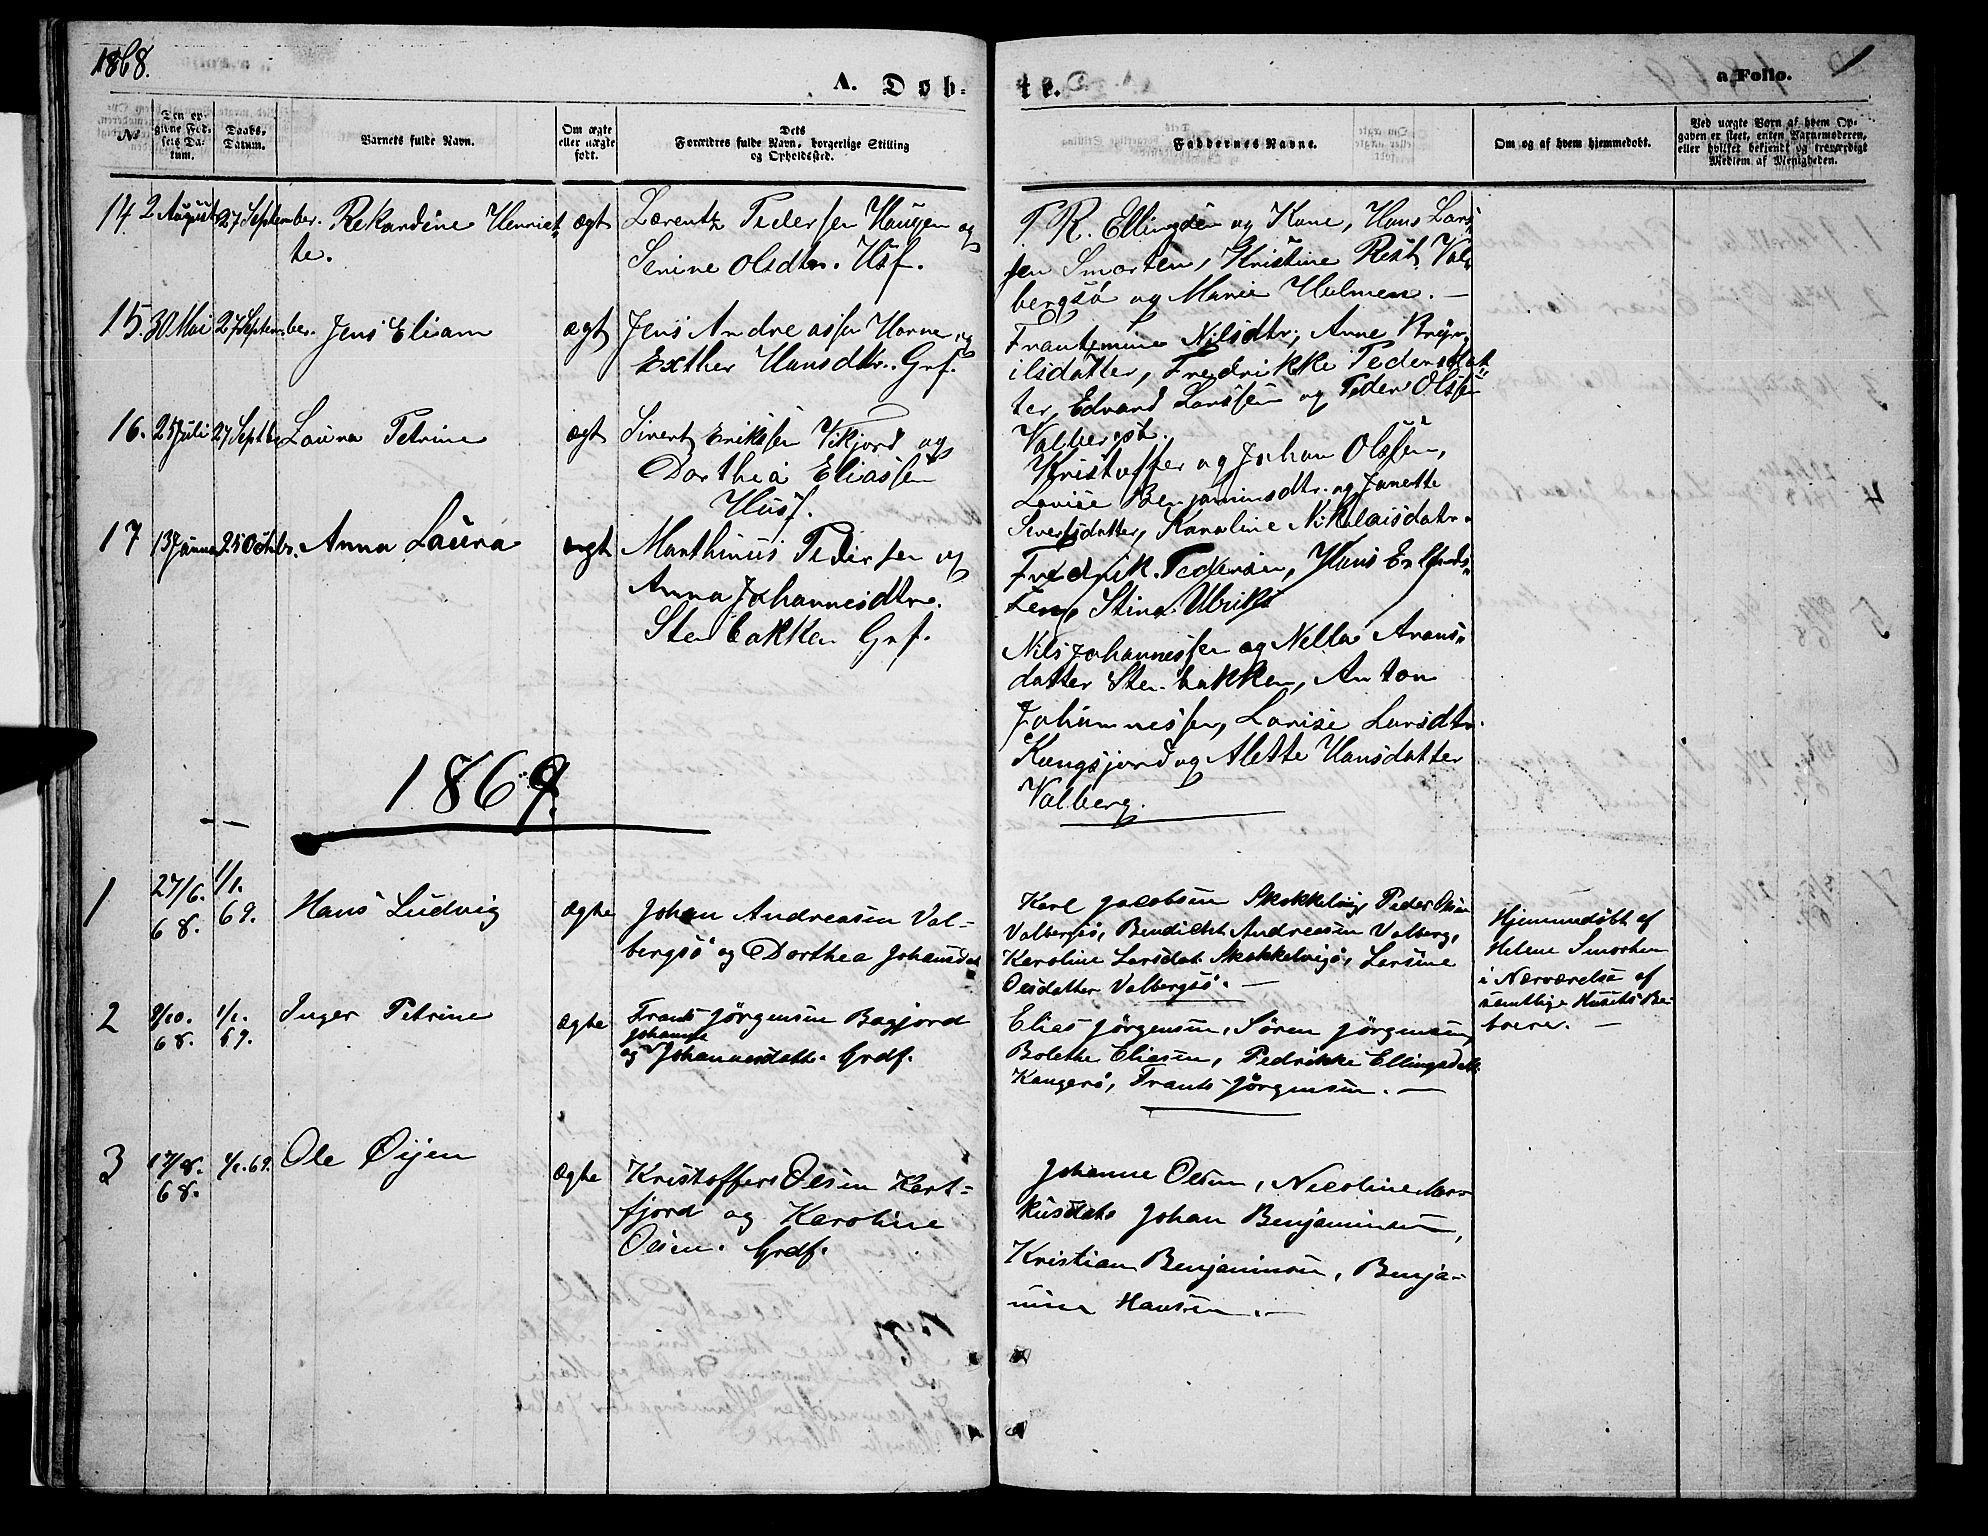 1868.
A. Døb-
te.
a. Folio.
1
No
Den opgivne Fødsels Datum.
Daabs-Datum.
Barnets fulde Navn.
Om ægte eller uægte født.
Dets Forældres fulde Navn, borgerlige Stilling og Opholdssted.
Faddernes Navne.
Om og af hvem hjemmedøbt.
Ved uægte Børn af hvem Opgaven er skeet, enten Barnemoderen, eller hvilket bekjendt og troværdigt Medlem af Menigheden.
14. 2 August 27 September. Rekardine Henriet-
te.
ægt
Lorentz Pedersen Haugen og
Serine Olsdtr. Hsf.
P R. Ellingsen og Kone, Hans Lars-
sen Smorten, Kristine Rist Val-
bergsö og Marie Holmen. —
15. 30 Mai 27 September. Jens Eliam
ægt
Jens Andreassen Horne og
Exther Hansdtr. Grf.
Frantzmine Nilsdtr, Anne
ilsdatter, Fredrikke Pedersdat-
ter, Edvard Larssen og Peder Olssen
Valbergsö.
16. 25 Juli 27 Septbr Laura Petrine
ægt
Sivert Eriksen Vikjord og
Dorthea Eliassen
Husf.
Kristoffer og Johan Olssen,
Lovise Benjaminsdtr. og Janette
Sivertsdatter, Karoline Nikolaisdatr.
17 13 Janua 25 Octbr. Anna Laura
ægt
Marthinus Pedersen og
Anna Johannesdtr.
Stenbakken Grf.
Fredrik Pedersen, Hans
Stina Ulriks
Nils Johannessen og Nella Arons-
datter Stenbakken, Anton
Johannessen, Lovise Larsdtr.
Kongsjord og Alette Hansdatter
Valberg.
1869.
1
27/6. 68.
1/1. 69.
Hans Ludvig
ægte
Johan Andreasen Val-
bergsö og Dorthea Johansdat
Karl Jacobsen Skokkelvig, Peder Olsen
Valbergsö, Bendickt Andreasen Valberg,
Karoline Larsdat. Skokkelvigö, Larsine
Olsdatter Valbergsö. —
Hjemmedøbt af
Helene Smorten
i Nærværelse af
samtlige Husets Be-
boere. —
2
9/10. 68.
1/1. 69.
Inger Petrine
ægte
Frants Jörgensen Bagjord
og Johanna Johannesdatt. Grdf.
Elias Jörgensen, Sören Jörgensen,
Bolette Eliesen, Pedrikke Ellingsdatt.
Kangerö, Frants Jörgensen. —
3
17/8. 68.
1/1. 69.
Ole Øijen
ægte
Kristoffer Olsen Kart-
fjord og Karoline
Olsen. Grdf.
Johanne Olsen, Nicoline Mar-
kusdat. Johan Benjaminsen,
Kristian Benjaminsen, Benja-
mine Hansen. —